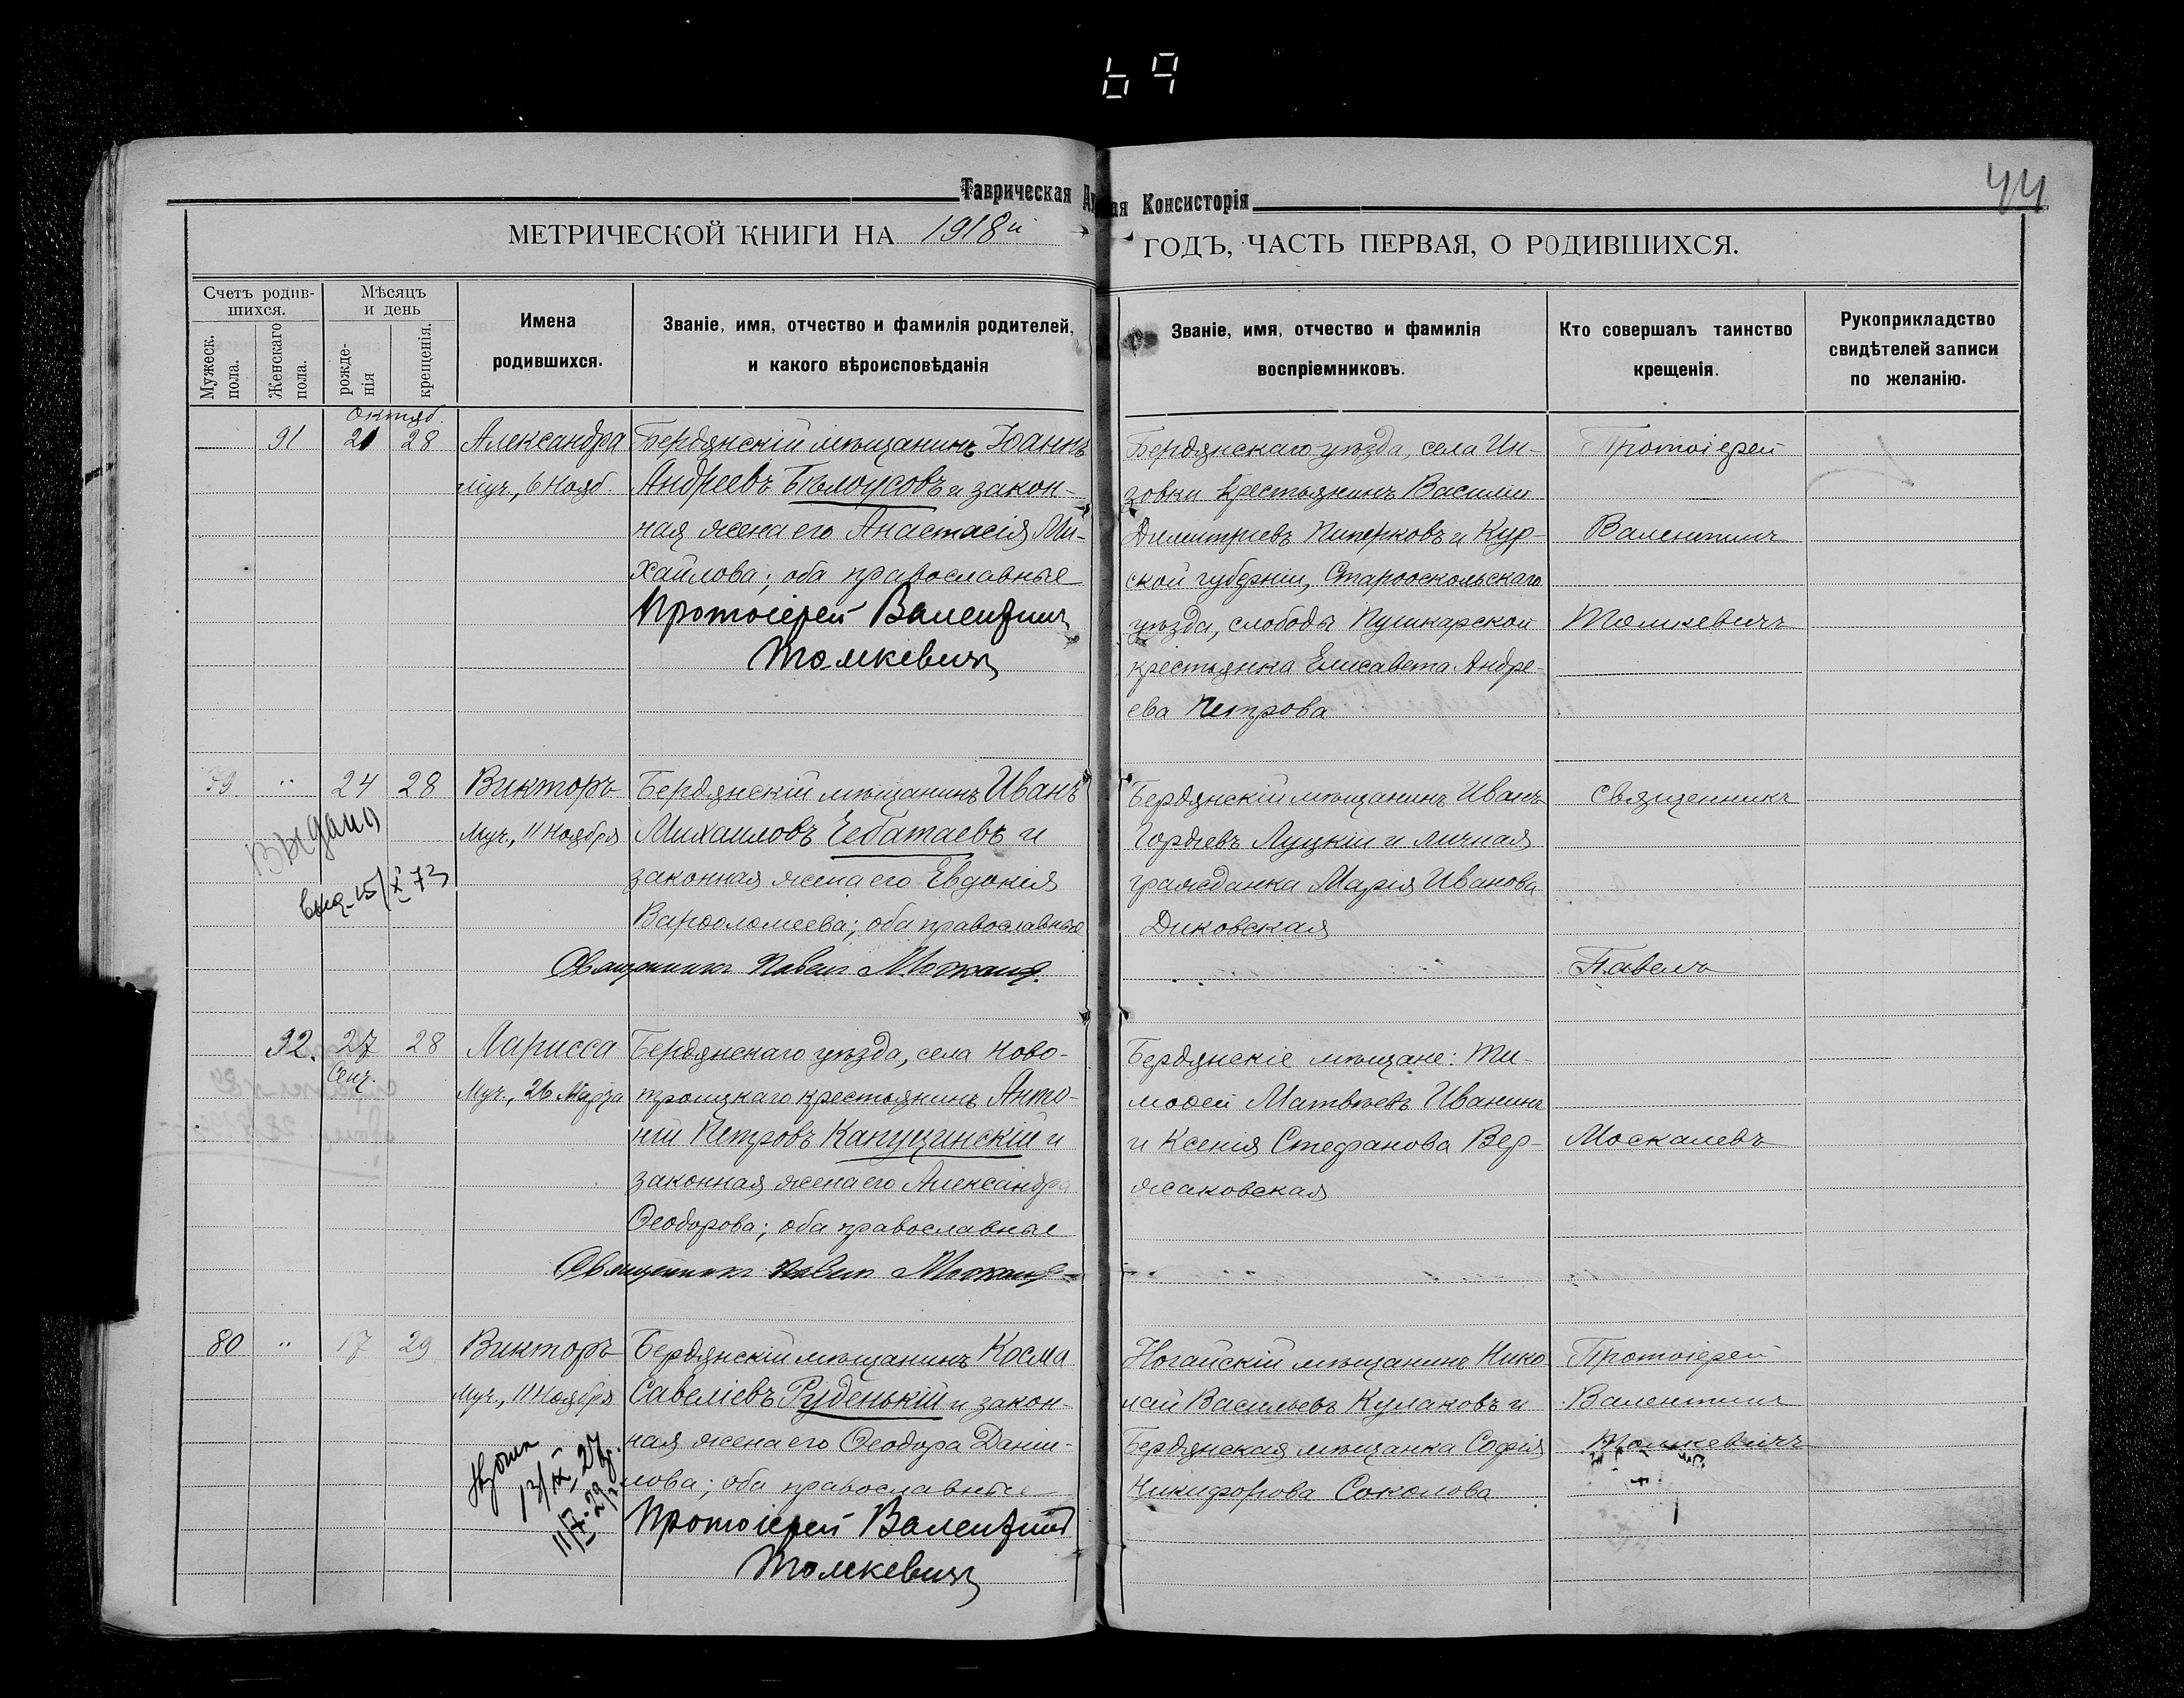 69
44
Таврическая
ая Консисторія
МЕТРИЧЕСКОЙ КНИГИ НА 1918й
ГОДЪ, ЧАСТЬ ПЕРВАЯ, О РОДИВШИХСЯ.
Счетъ родив-
шихся.
Мужеск.
пола.
Женскаго
пола.
Мѣсяцъ
и день
рожде-
нія
крещенія.
Имена
родившихся.
Званіе, имя, отчество и фамилія родителей,
и какого вѣроисповѣданія
Званіе, имя, отчество и фамилія
воспріемниковъ.
Кто совершалъ таинство
крещенія.
Рукоприкладство
свидѣтелей записи
по желанію.
Октяб.
91 21 28 Александра
муч., 6 Нояб.
Бердянскій мѣщанинъ Іоаннъ
Андреевъ Бѣлоусовъ и закон-
ная жена его Анастасія Ми-
хайлова; оба православные
Протоіерей Валентинъ
Томкевичъ
Бердянскаго уѣзда, села Ин-
зовки крестьянинъ Василій
Димитріевъ Пиперковъ и Кур-
ской губерніи, Старооскольскаго
уѣзда, слободы Пушкарской
крестьянка Елисавета Андре-
ева Петрова
Протоіерей
Валентинъ
Томкевичъ
79 " 24 28 Викторъ
Муч., 11 Ноября
Выдано
выд. 15/X 73
Бердянскій мѣщанинъ Иванъ
Михаиловъ Чебатаевъ и
законная жена его Евдокія
Варѳоломеева; оба православные
Священникъ Павелъ Москалев
Бердянскій мѣщанинъ Иванъ
Гордіевъ Луцкій и личная
гражданка Марія Иванова
Диковская
Священникъ
Павелъ
Москалевъ
92. 27 28 Ларисса
Сент.
Муч., 26 Марта
Бердянскаго уѣзда, села Ново-
троицкаго крестьянинъ Анто-
ній Петровъ Капущинскій и
законная жена его Александра
Ѳеодорова; оба православные
Священникъ Павелъ Москалев
Бердянскіе мѣщане: Ти-
моѳей Матвѣевъ Иванинъ
и Ксенія Стефанова Вер-
жаковская
80 " 17 29 Викторъ
Муч., 11 Ноября
13/IX 27г.
Бердянскій мѣщанинъ Косма
Савеліевъ Руденькій и закон-
ная жена его Ѳеодора Дании-
лова; оба православные
Протоіерей Валентинъ
Томкевичъ
Ногайскій мѣщанинъ Нико
лай Васильевъ Кулаковъ и
Бердянская мѣщанка Софія
Никифорова Соколова
Протоіерей
Валентинъ
Томкевичъ